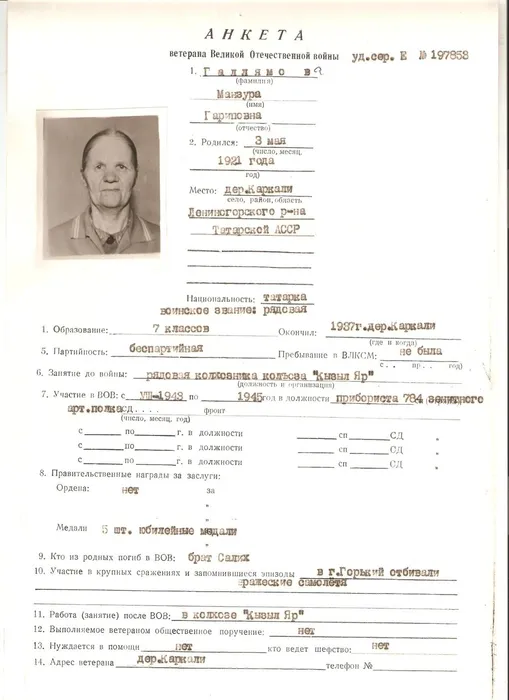 АНКЕТА
ветерана Великой Отечественной войны уд.сер. Е № 197853
1. Галлямова
(фамилия)
Манзура
(имя)
Гариповна
(отчество)
2. Родился: 3 мая
(число, месяц,
1921 года
год)
Место: дер.Каркали
село, район, область
Лениногорского р-на
Татарской АССР
Национальность: татарка
воинское звание: рядовая
1. Образование: 7 классов Окончил: 1937г.дер.Каркали
(где и когда)
5. Партийность: беспартийная Пребывание в ВЛКСМ: не была
с . . пр. . год)
6. Занятие до войны: рядовая колховника колхоза "Кызыл Яр"
(должность и организация)
7. Участие в ВОВ: с VIII-1943 по 1945год в должности прибориста 784 зенитного
арт.полка сд.... фронт
(число, месяц, год)
с по г. в должности сп СД
с по г. в должности сп СД
с по г. в должности сп СД
8. Правительственные награды за заслуги:
Ордена: нет за
"
Медали 5 шт. юбилейные медали
"
9. Кто из родных погиб в ВОВ: брат Салих
10. Участие в крупных сражениях и запомнившиеся эпизоды в г.Горький отбивали
вражеские самолётя
11. Работа (занятие) после ВОВ: в колхозе "Кызыл Яр"
12. Выполняемое ветераном общественное поручение: нет
13. Нуждается в помощи нет кто ведет шефство: нет
14. Адрес ветерана дер.Каркали телефон №